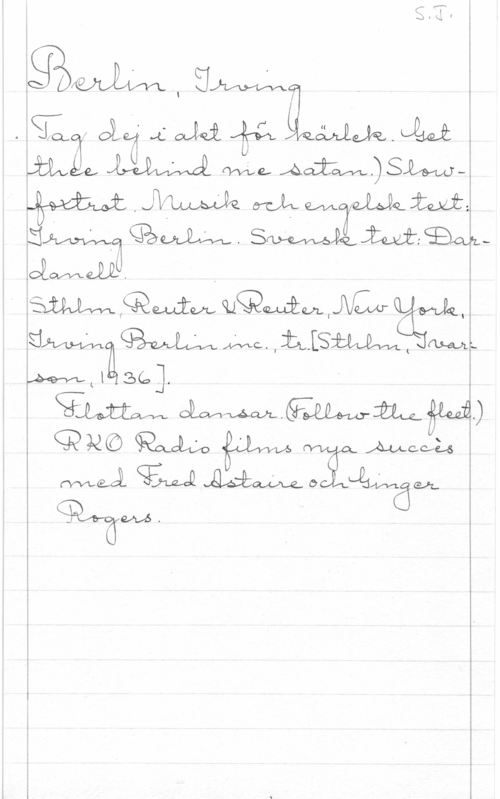 S.J.
Berlin, Irving
Tag dej i akt för kärlek. Get
thee behind me satan.) Slow-
foxtrot. Musik och engelsk text:
Irving Berlin. Svensk text: Dar-
danell.
Sthlm, Reuter & Reuter, New York,
Irving Berlin inc., tr.[Sthlm, Ivar-
son, 1936].
Flottan dansar. (Follow the fleet.)
RKO Radio films nya succès
med Fred Astaire och Ginger
Rogers.